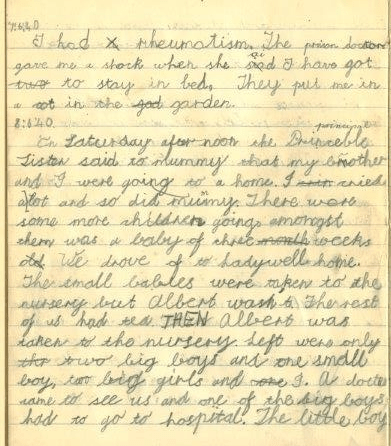 7.6.40
I had x rheumatism. The prison doctor
gave me a shock when she said I have got
two to stay in bed. They put me in
a cot in the god garden.
8.6.40. principle
On Saturday after noon the Princeble
Sister said to mummy that my brother
and I were going to a home. I cried
alot and so did mummy. There were
some more children going amongst
them was a baby of three month weeks
old. We drove of to Ladywell home.
The small babies were taken to the
nursery but Albert wasn't. The rest
of us had tea THEN Albert was
taken to the nursery. Left were only
thr two big boys and one small
boy, too big girls and one I. A doctor
came to see us and one of the big boys
had to go to hospital. The little boy